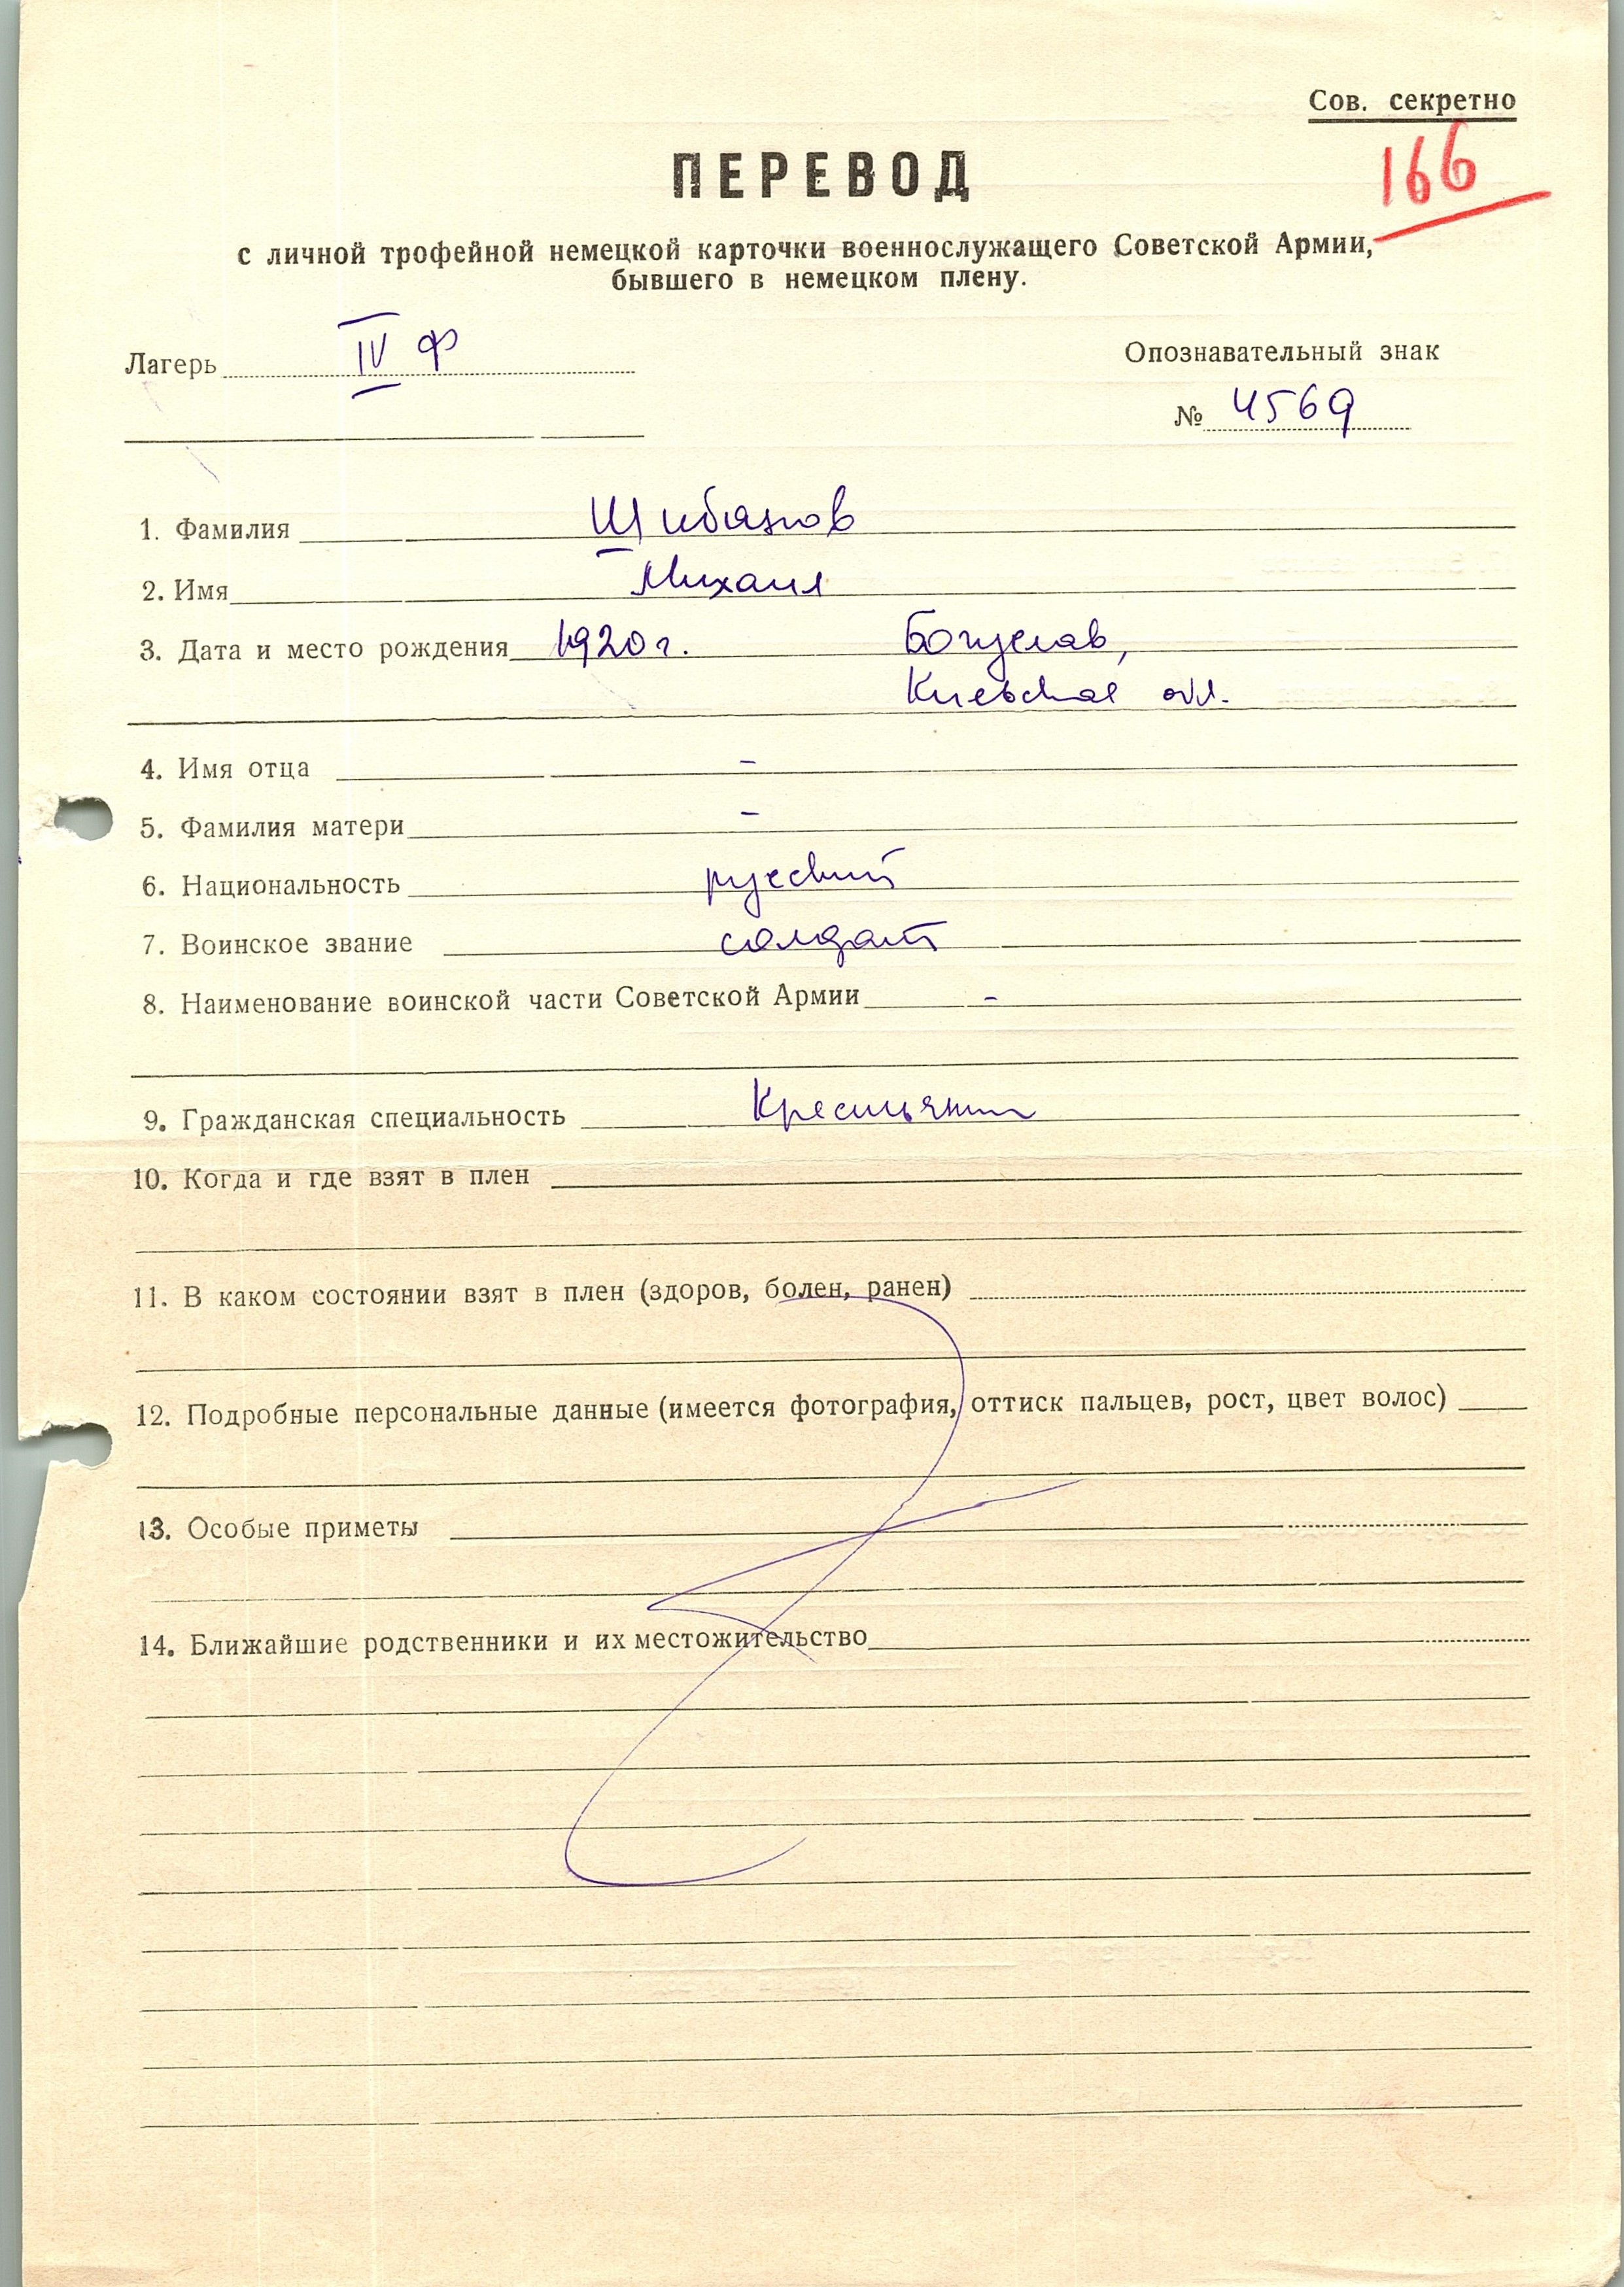 Сов. секретно
166
ПЕРЕВОД
с личной трофейной немецкой карточки военнослужащего Советской Армии,
бывшего в немецком плену.
Лагерь IV Ф
Опознавательный знак
№ 4569
1. Фамилия Шибанов
2. Имя Михаил
3. Дата и место рождения 1920 г. Богуслав,
Киевская обл.
4. Имя отца –
5. Фамилия матери –
6. Национальность русский
7. Воинское звание солдат
8. Наименование воинской части Советской Армии –
9. Гражданская специальность Крестьянин
10. Когда и где взят в плен
11. В каком состоянии взят в плен (здоров, болен, ранен)
12. Подробные персональные данные (имеется фотография, оттиск пальцев, рост, цвет волос)
13. Особые приметы
14. Ближайшие родственники и их местожительство